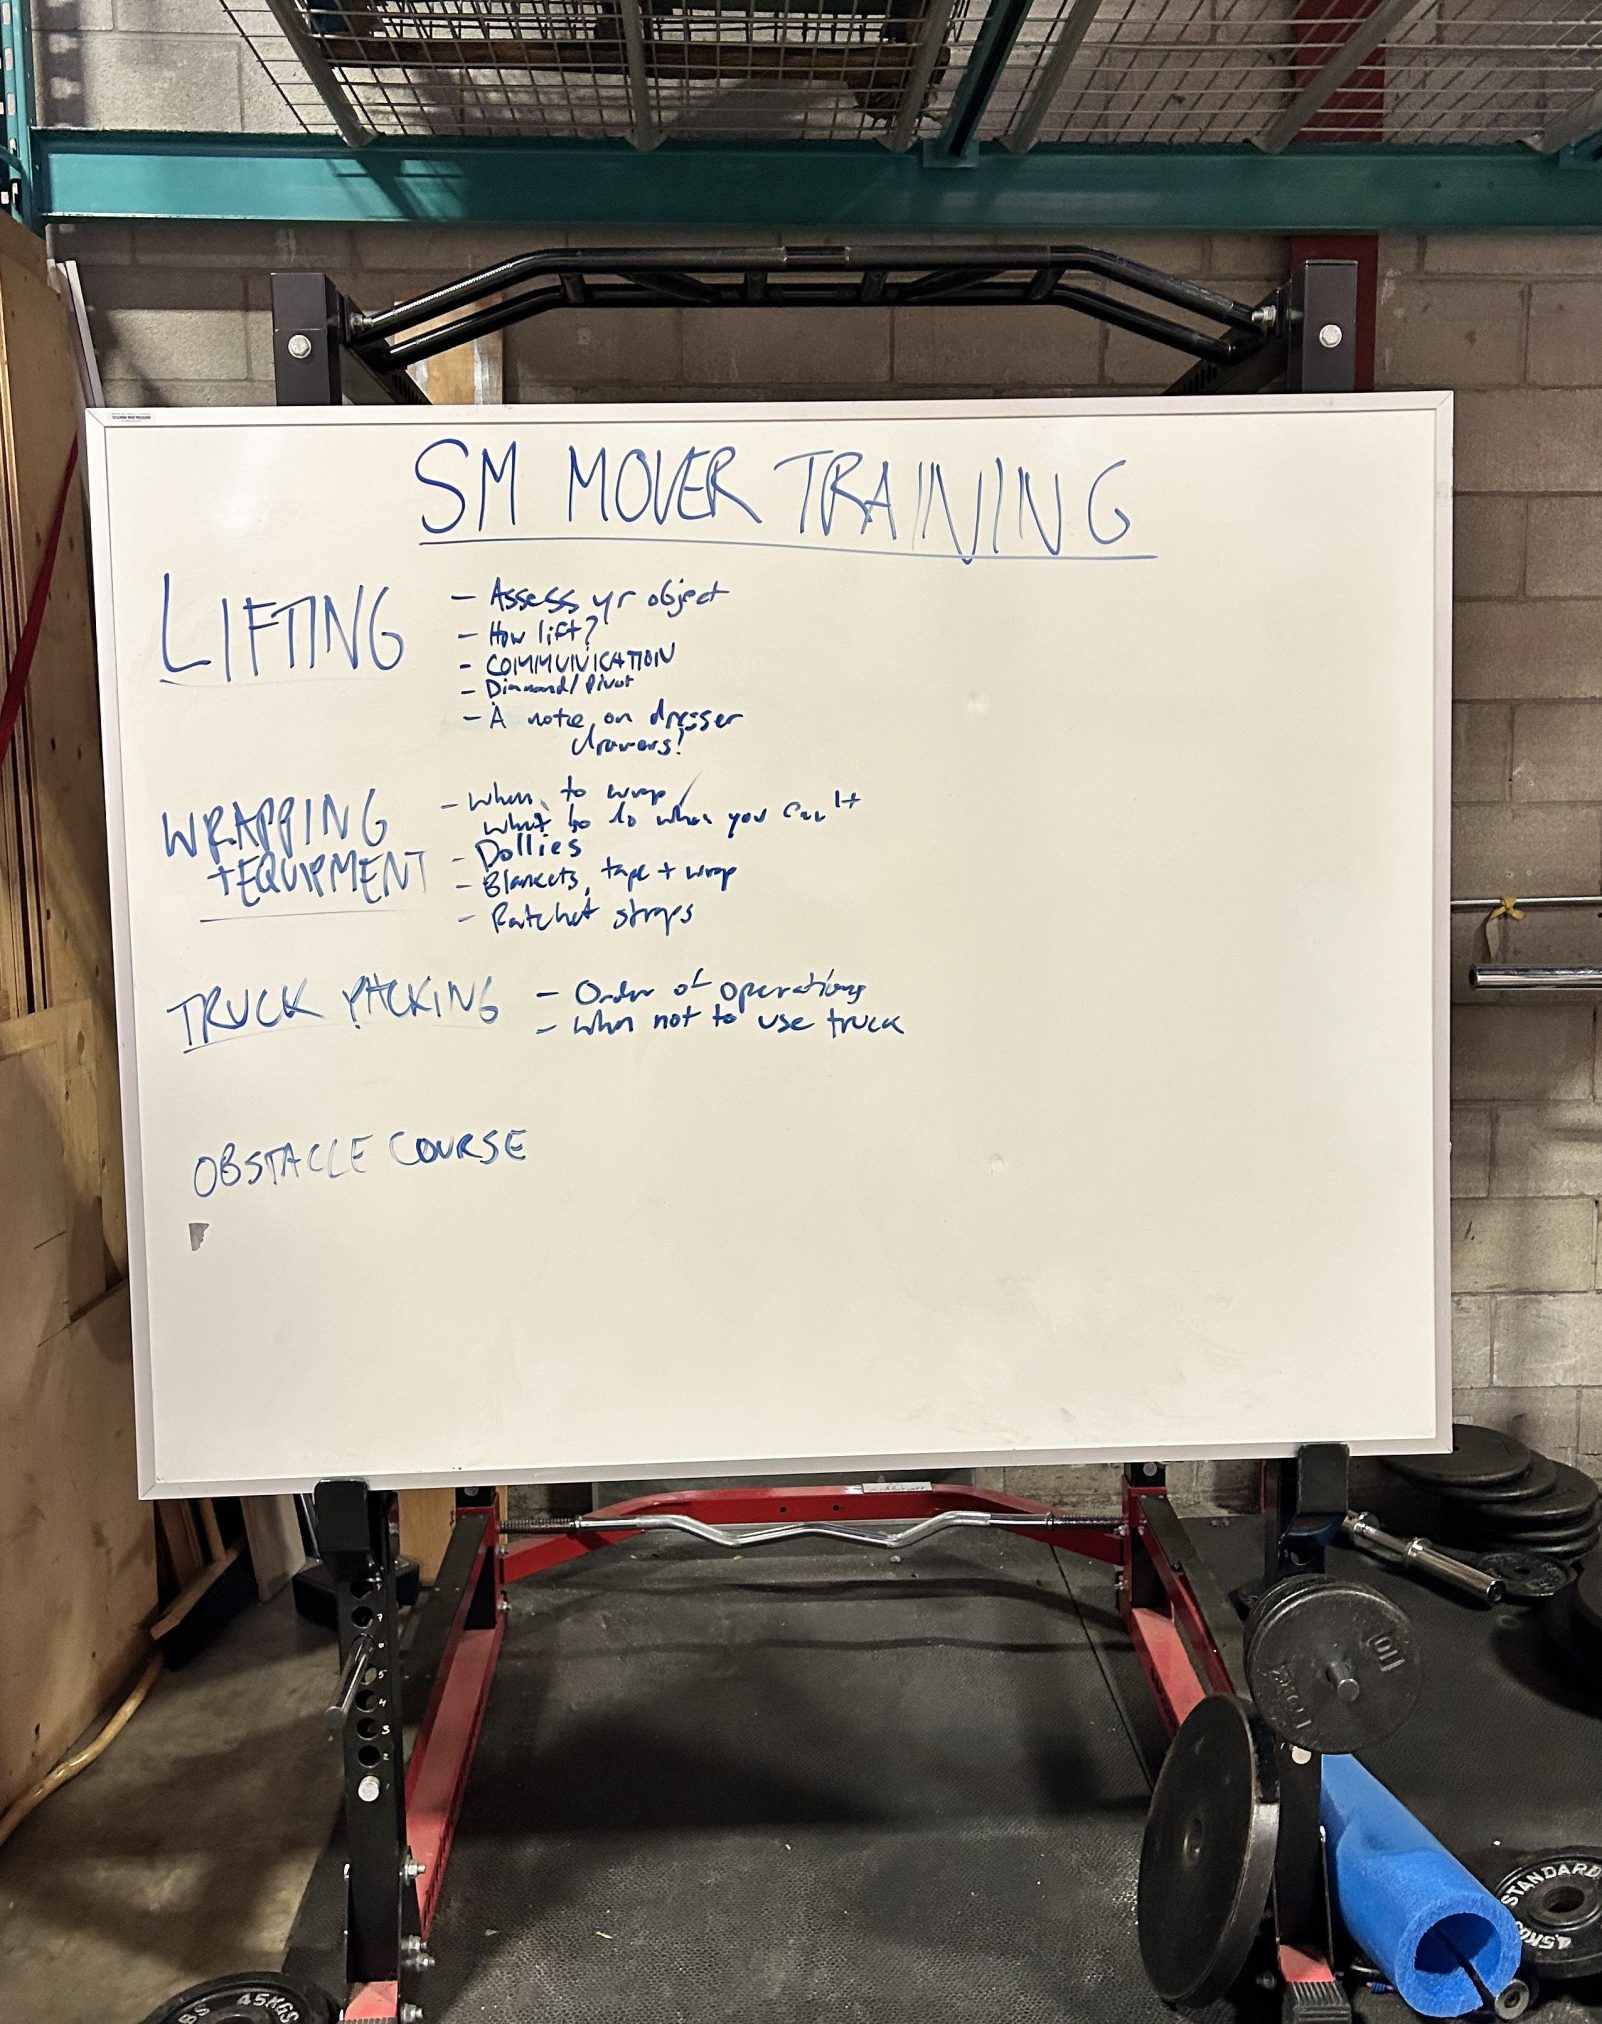 SM MOVER TRAINING
LIFTING
- Assess yr object
- How lift?
- COMMUNICATION
- Diamond/Pivot
- A note on dresser
drawers!
WRAPPING
+EQUIPMENT
- When to wrap /
what to do when you can't
- Dollies
- Blankets, tape + wrap
- Ratchet straps
TRUCK PACKING
- Order of operations
- When not to use truck
OBSTACLE COURSE
7
6
5
4
3
2
10
STANDARD
45KGS